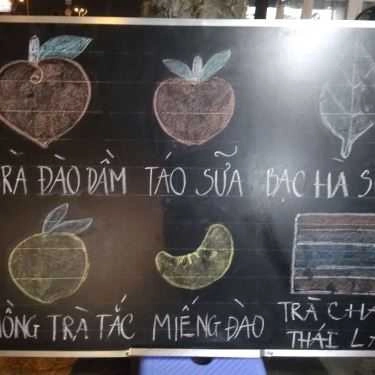 RÀ ĐÀO DẦM TÁO SỮA BẠC HÀ S
ỒNG TRÀ TẮC MIẾNG ĐÀO TRÀ CHA
THÁI LA